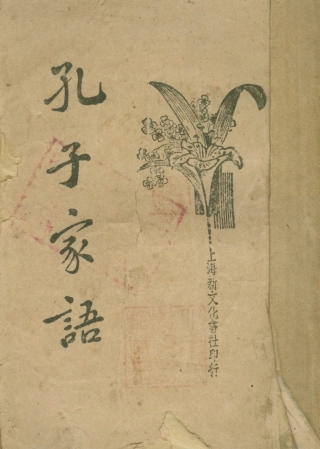 孔子家語
上海新文化書社印行